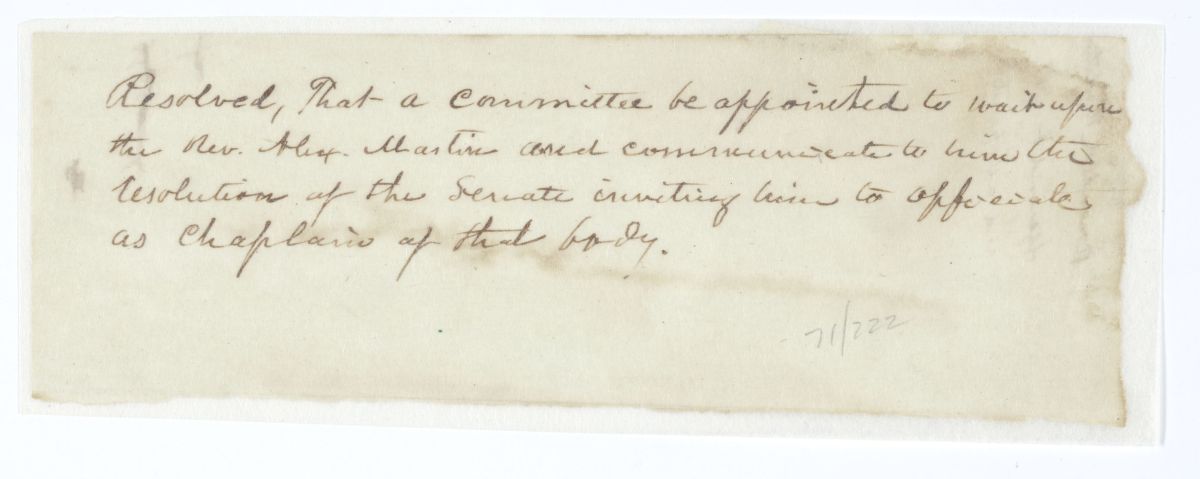 Resolved, That a committee be appointed to wait upon
the Rev. Alex. Martin and communicate to him the
resolution of the Senate inviting him to officiate
as chaplain of that body.
71/222